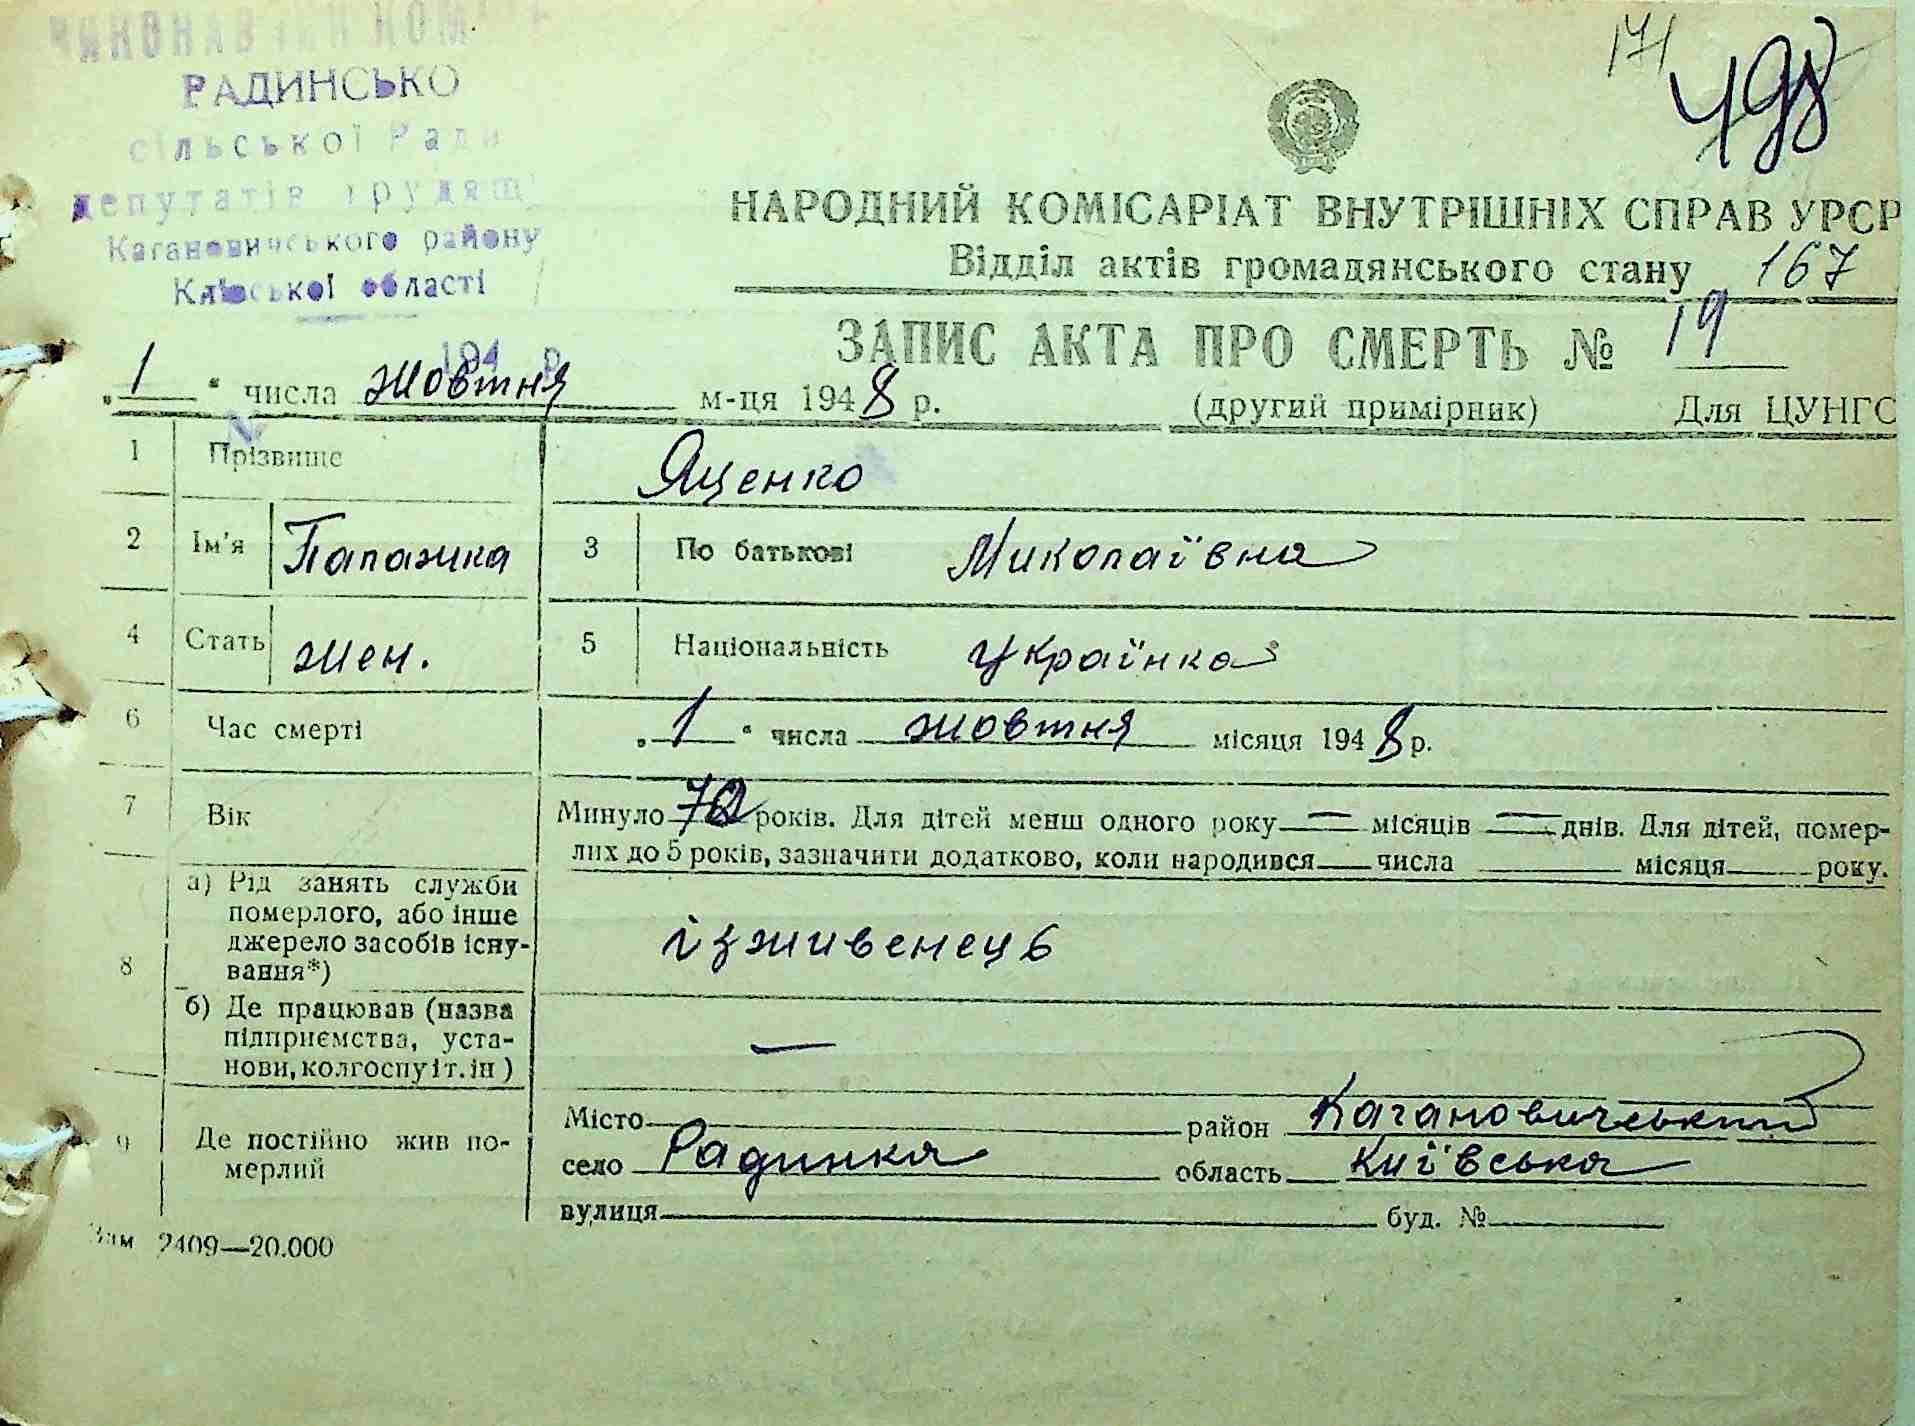 РАДИНСЬКО
сільської Ради
депутатів трудящ
Кагановичського району
Київської області
194 р.
171
498
НАРОДНИЙ КОМІСАРІАТ ВНУТРІШНІХ СПРАВ УРСР
Відділ актів громадянського стану 167
ЗАПИС АКТА ПРО СМЕРТЬ № 19
„1“ числа жовтня м-ця 1948 р.
(другий примірник) Для ЦУНГО
1 Прізвище Яценко
2 Ім'я Папажка 3 По батькові Миколаївна
4 Стать жен. 5 Національність українка
6 Час смерті „1“ числа жовтня місяця 1948 р.
7 Вік Минуло 72 років. Для дітей менш одного року — місяців — днів. Для дітей, помер-
лих до 5 років, зазначити додатково, коли народився числа місяця року.
8 а) Рід занять служби
померлого, або інше
джерело засобів існу-
вання*)
ізживенець
б) Де працював (назва
підприємства, уста-
нови, колгоспу і т. ін)
—
9 Де постійно жив по-
мерлий
Місто район Кагановичеський
село Радинка область Київська
вулиця буд. №
Зам 2409—20.000